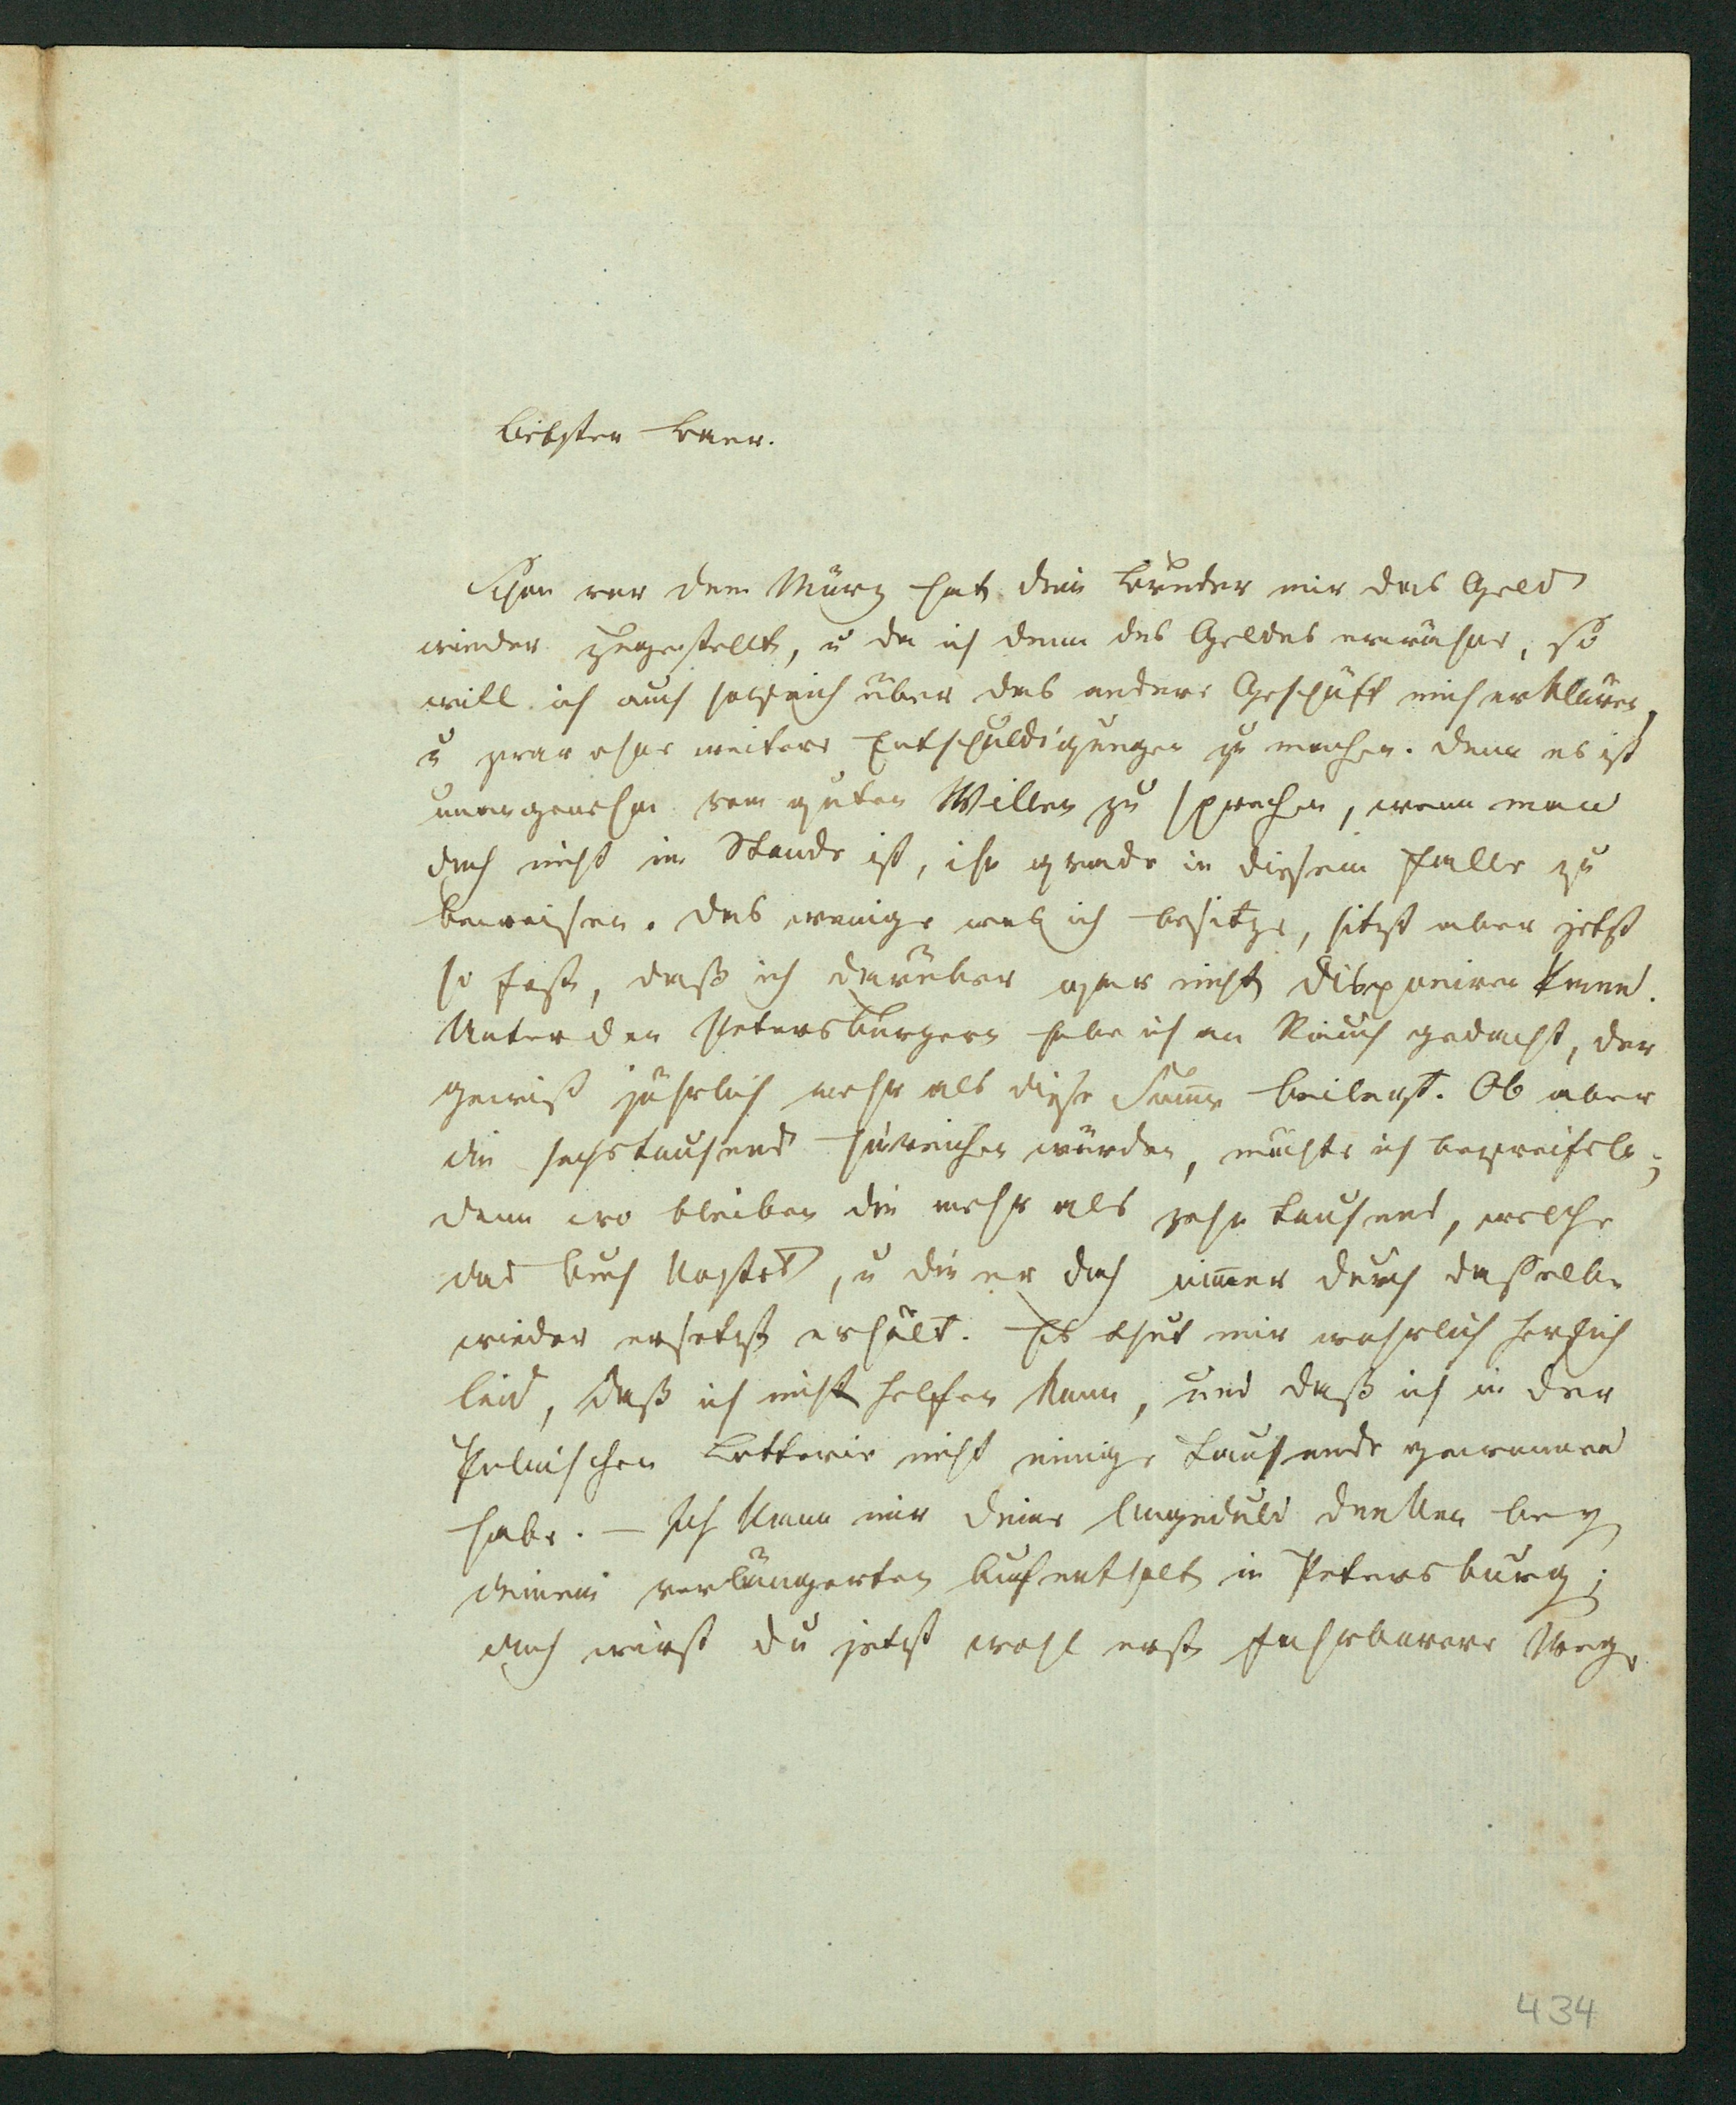 Liebster Baer.
Schon vor dem März hat dein Bruder mir das Geld
wieder zugestellt, u da ich denn des Geldes erwähne, so
will ich auch sogleich über das andere Geschäft mich erklären,
u zwar ohne weitere Entschuldigungen zu machen. Denn es ist
unangenehm vom guten Willen zu sprechen, wenn man
doch nicht im Stande ist, ihn grade in diesem Falle zu
beweisen. Das wenige was ich besitze, sitzt aber jetzt
so fest, daß ich darüber gar nicht disponiren kann.
Unter den Petersburgern habe ich an Rauch gedacht, der
gewiß jährlich mehr als diese Summe beilegt. Ob aber
die sechstausend hinreichen würden, möchte ich bezweifeln;
denn wo bleiben die mehr als zehn tausend, welche
das Buch kostet, u die er doch immer durch dasselbe
wieder ersetzt erhält. Es thut mir wahrlich herzlich
leid, daß ich nicht helfen kann, und daß ich in der
Polnischen Lotterie nicht einige tausende gewonnen
habe. – Ich kann mir deine Ungeduld denken bey
deinem verlängerten Aufenthalt in Petersburg;
doch wirst du jetzt wohl erst fahrbarere Wege
434